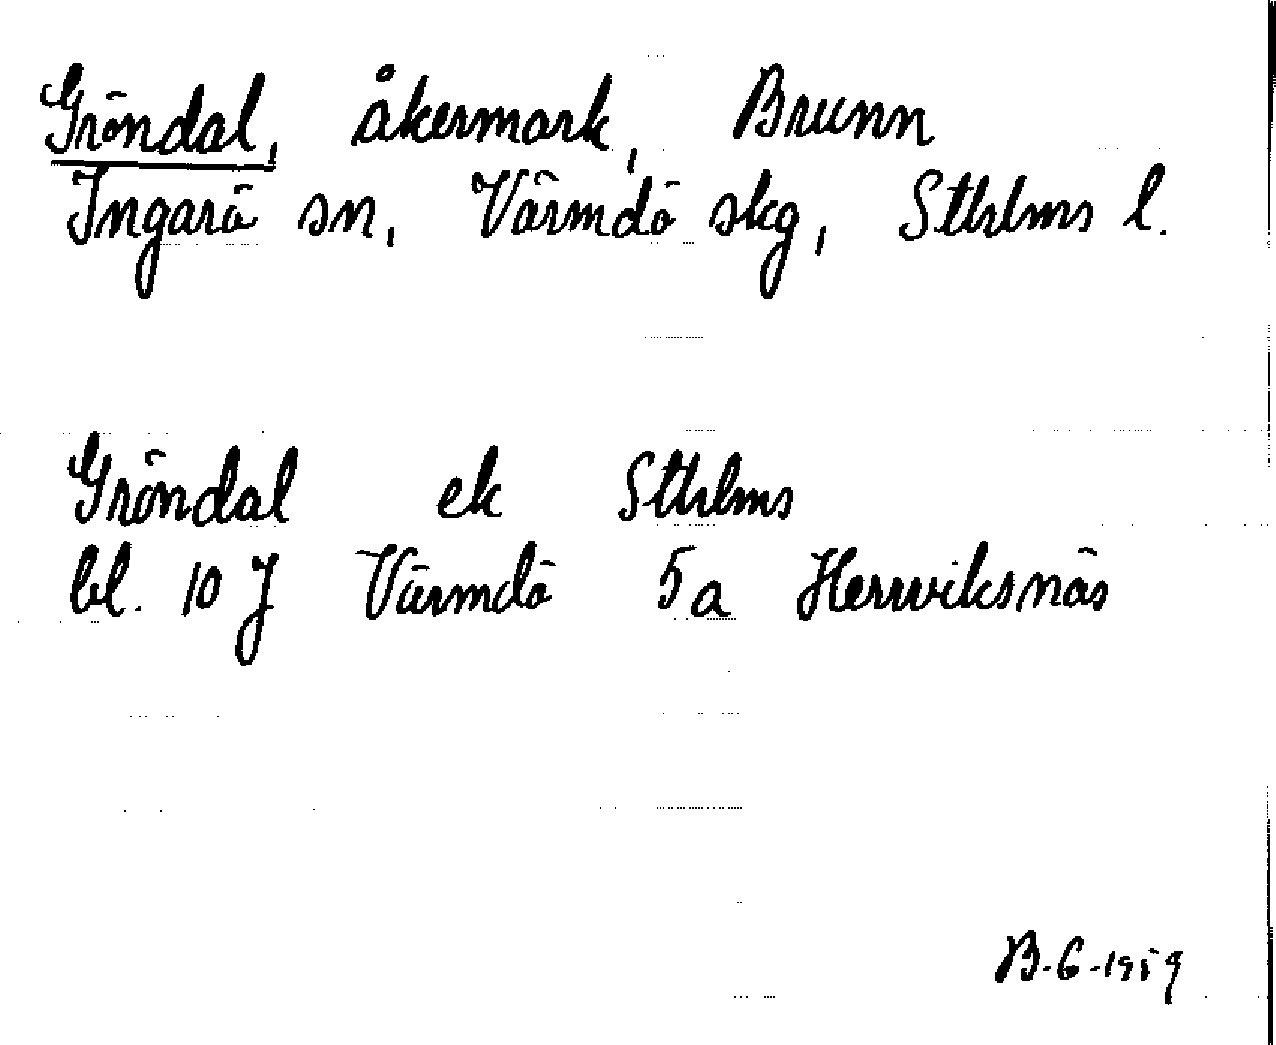 Gröndal, åkermark, Brunn
Ingarö sn, Värmdö skg, Sthlms l.
Gröndal ek Sthlms
bl. 10 J Värmdö 5a Herrviksnäs
B.G. 1959